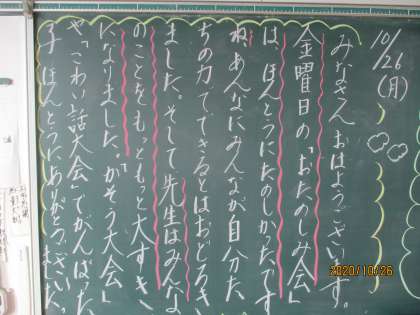 10/26(月)
みなさん おはようございます。
金曜日の「おたのしみ会」
は、ほんとうにたのしかったです
ね。あんなにみんなが自分た
ちの力でできるとはおどろき
ました。そして先生はみんな
のことをもっともっと大すき
になりました。「かそう大会」
や「こわい話大会」でがんばった
子 ほんとうにありがとうございました。
2020/10/26